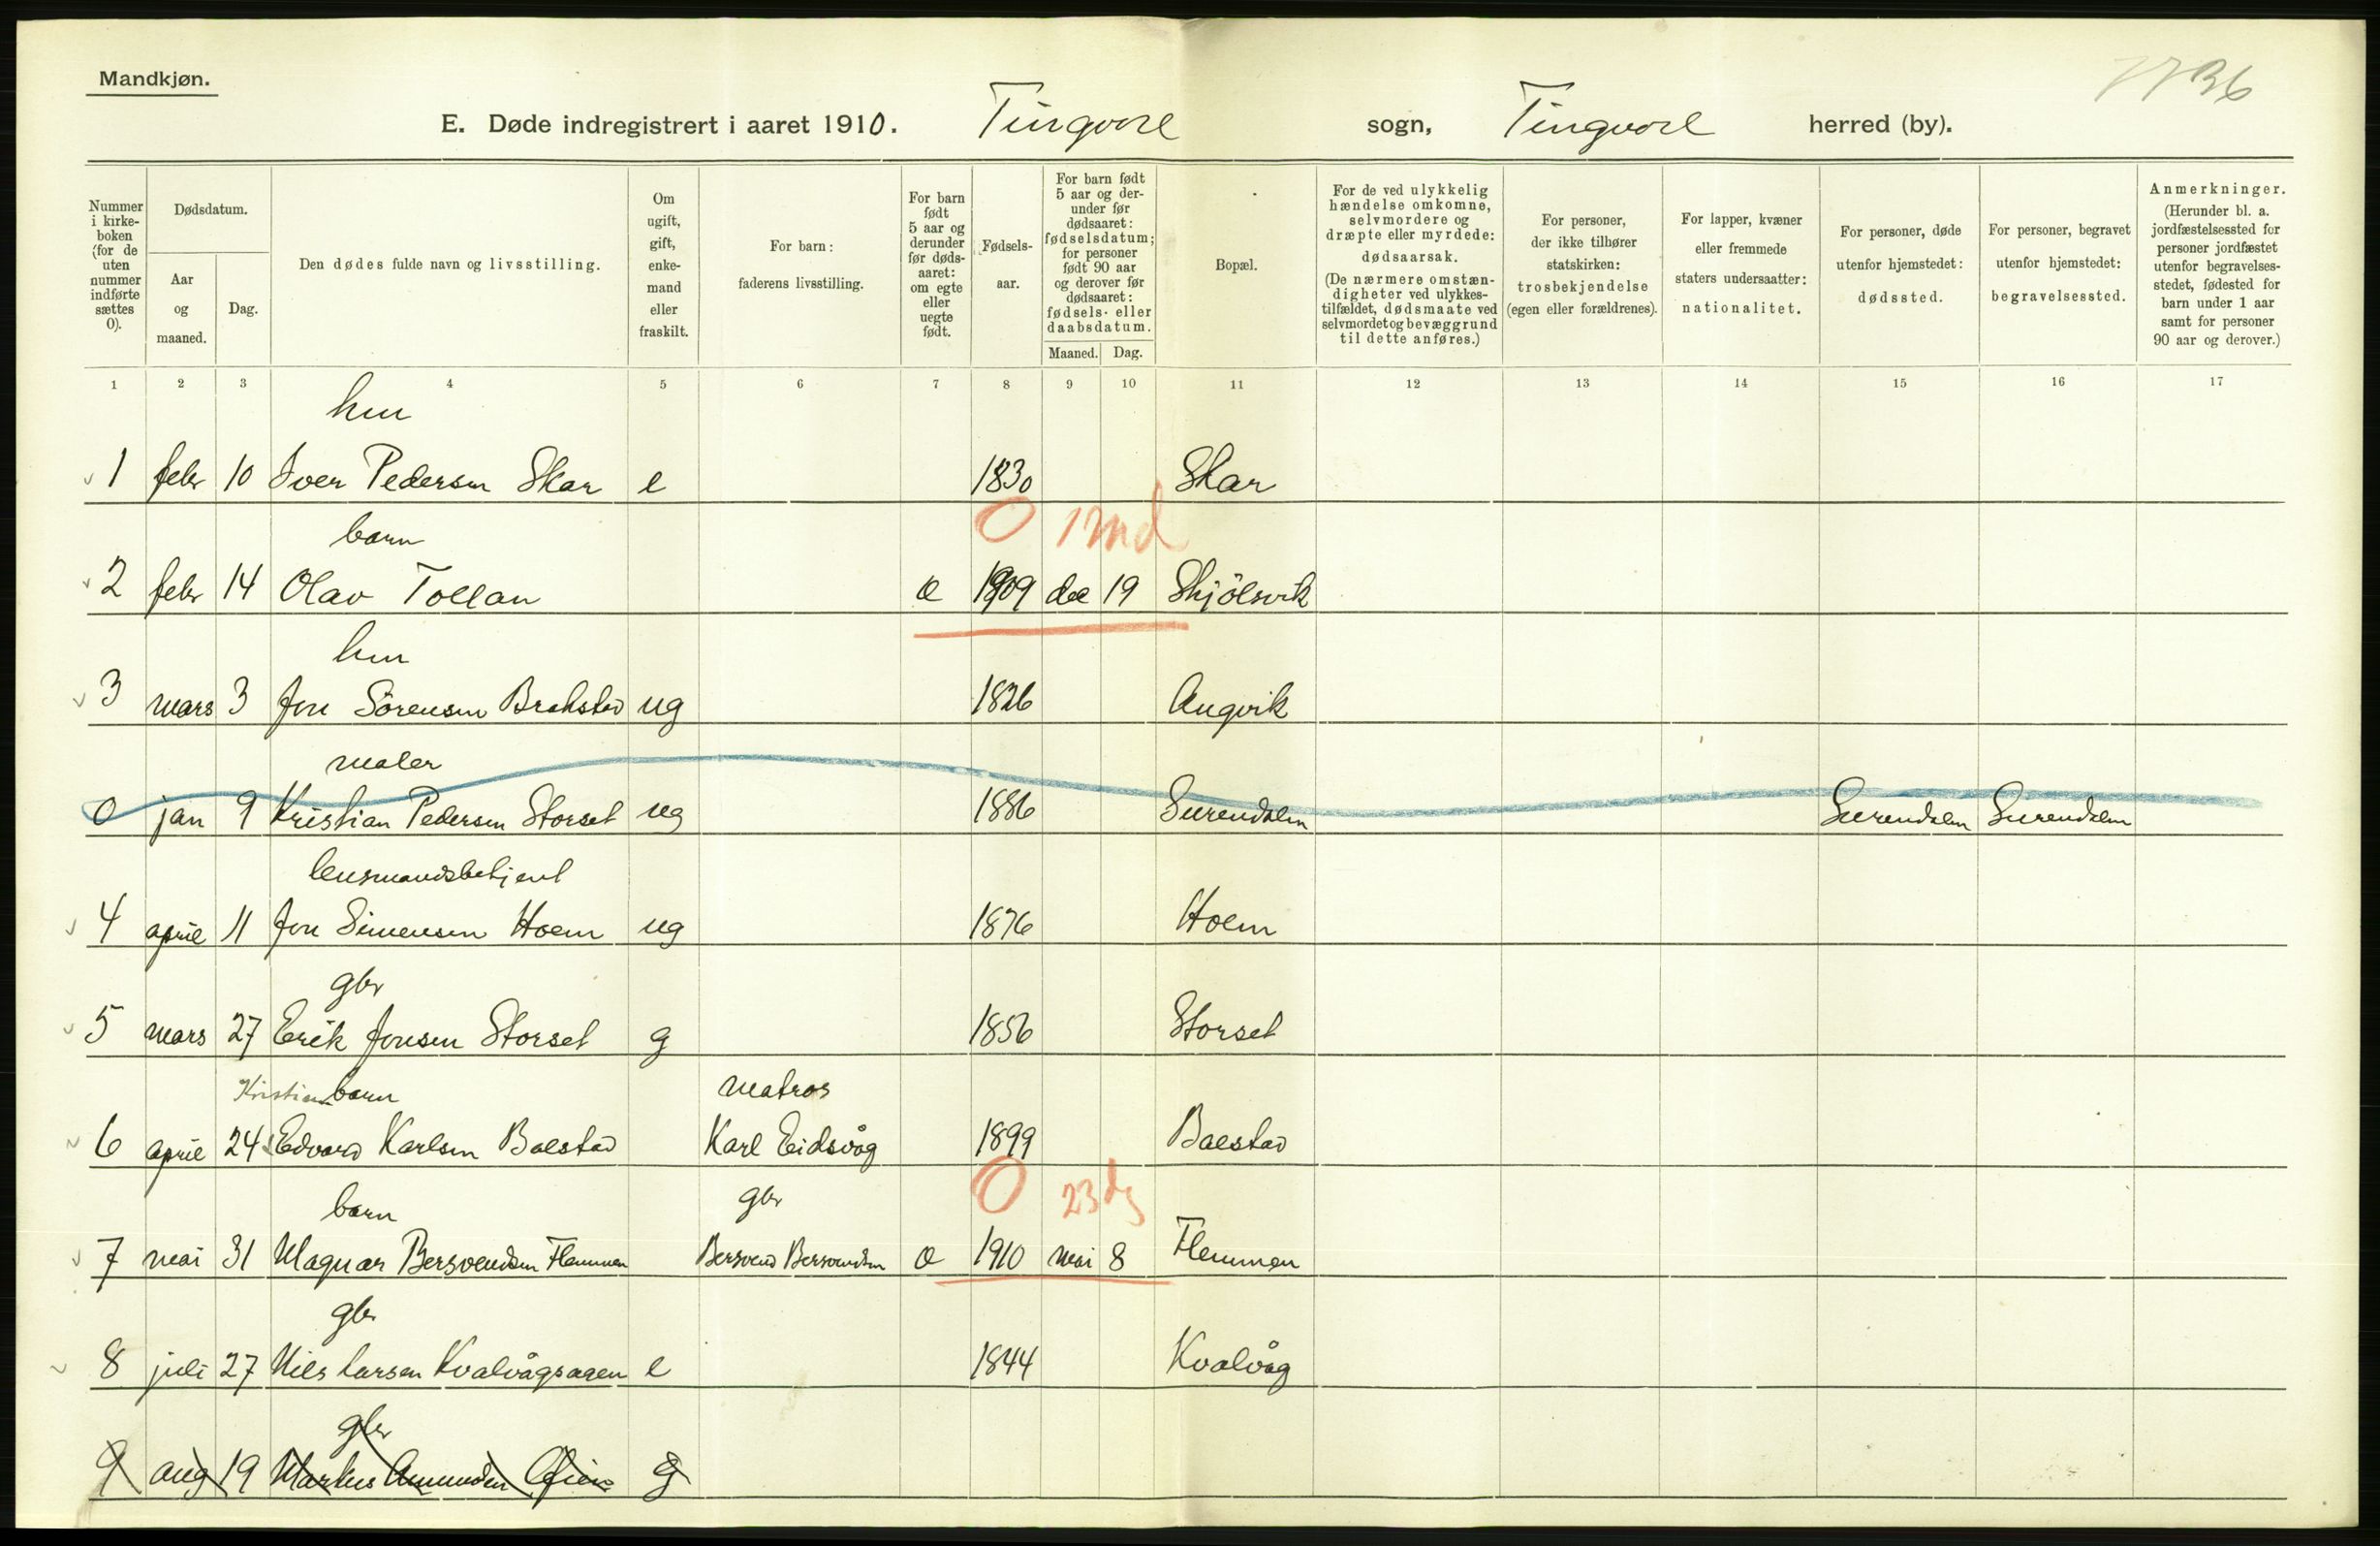 Mandkjøn.
7736
E. Døde indregistrert i aaret 1910. Tingvoll sogn, Tingvoll herred (by).
Nummer i kirkeboken (for de uten nummer indførte sættes 0).
Dødsdatum.
Aar og maaned.
Dag.
Den dødes fulde navn og livsstilling.
Om ugift, gift, enkemand eller fraskilt.
For barn: faderens livsstilling.
For barn født 5 aar og derunder før dødsaaret: om egte eller uegte født.
Fødselsaar.
For barn født 5 aar og derunder før dødsaaret: fødselsdatum; for personer født 90 aar og derover før dødsaaret: fødsels- eller daabsdatum.
Maaned. Dag.
Bopæl.
For de ved ulykkelig hændelse omkomne, selvmordere og dræpte eller myrdede: dødsaarsak.
(De nærmere omstændigheter ved ulykkestilfældet, dødsmaate ved selvmordet og bevæggrund til dette anføres.)
For personer, der ikke tilhører statskirken: trosbekjendelse (egen eller forældrenes).
For lapper, kvæner eller fremmede staters undersaatter: nationalitet.
For personer, døde utenfor hjemstedet: dødssted.
For personer, begravet utenfor hjemstedet: begravelsessted.
Anmerkninger.
(Herunder bl. a. jordfæstelsessted for personer jordfæstet utenfor begravelsesstedet, fødested for barn under 1 aar samt for personer 90 aar og derover.)
1 2 3 4 5 6 7 8 9 10 11 12 13 14 15 16 17
1 febr 10 Iver Pedersen Skar e 1830 Skar
0 12md
barn
2 febr 14 Olav Tollan e 1909 de 19 Skjölsvik
3 mars 3 Jon Sörensen Brakstad ug 1826 Angvik
maler
0 jan 9 Kristian Pedersen Storset ug 1886 Surendalen Surendalen Surendalen
lensmandsbetjent
4 april 11 Jon Simensen Hoem ug 1876 Hoem
gbr
5 mars 27 Erik Jonsen Storset g 1856 Storset
Kristian barn matros
6 april 24 Edvard Karlsen Balstad Karl Eidsvåg 1899 Balstad
0 23 dg
barn gbr
7 mai 31 Magnar Bersvendsen Flemmen Bersvend Bersvendsen e 1910 mai 8 Flemmen
gbr
8 juli 27 Nils Larsen Kvalvågsagen e 1844 Kvalvåg
gbr
9 aug 19 Markus Amundsen g